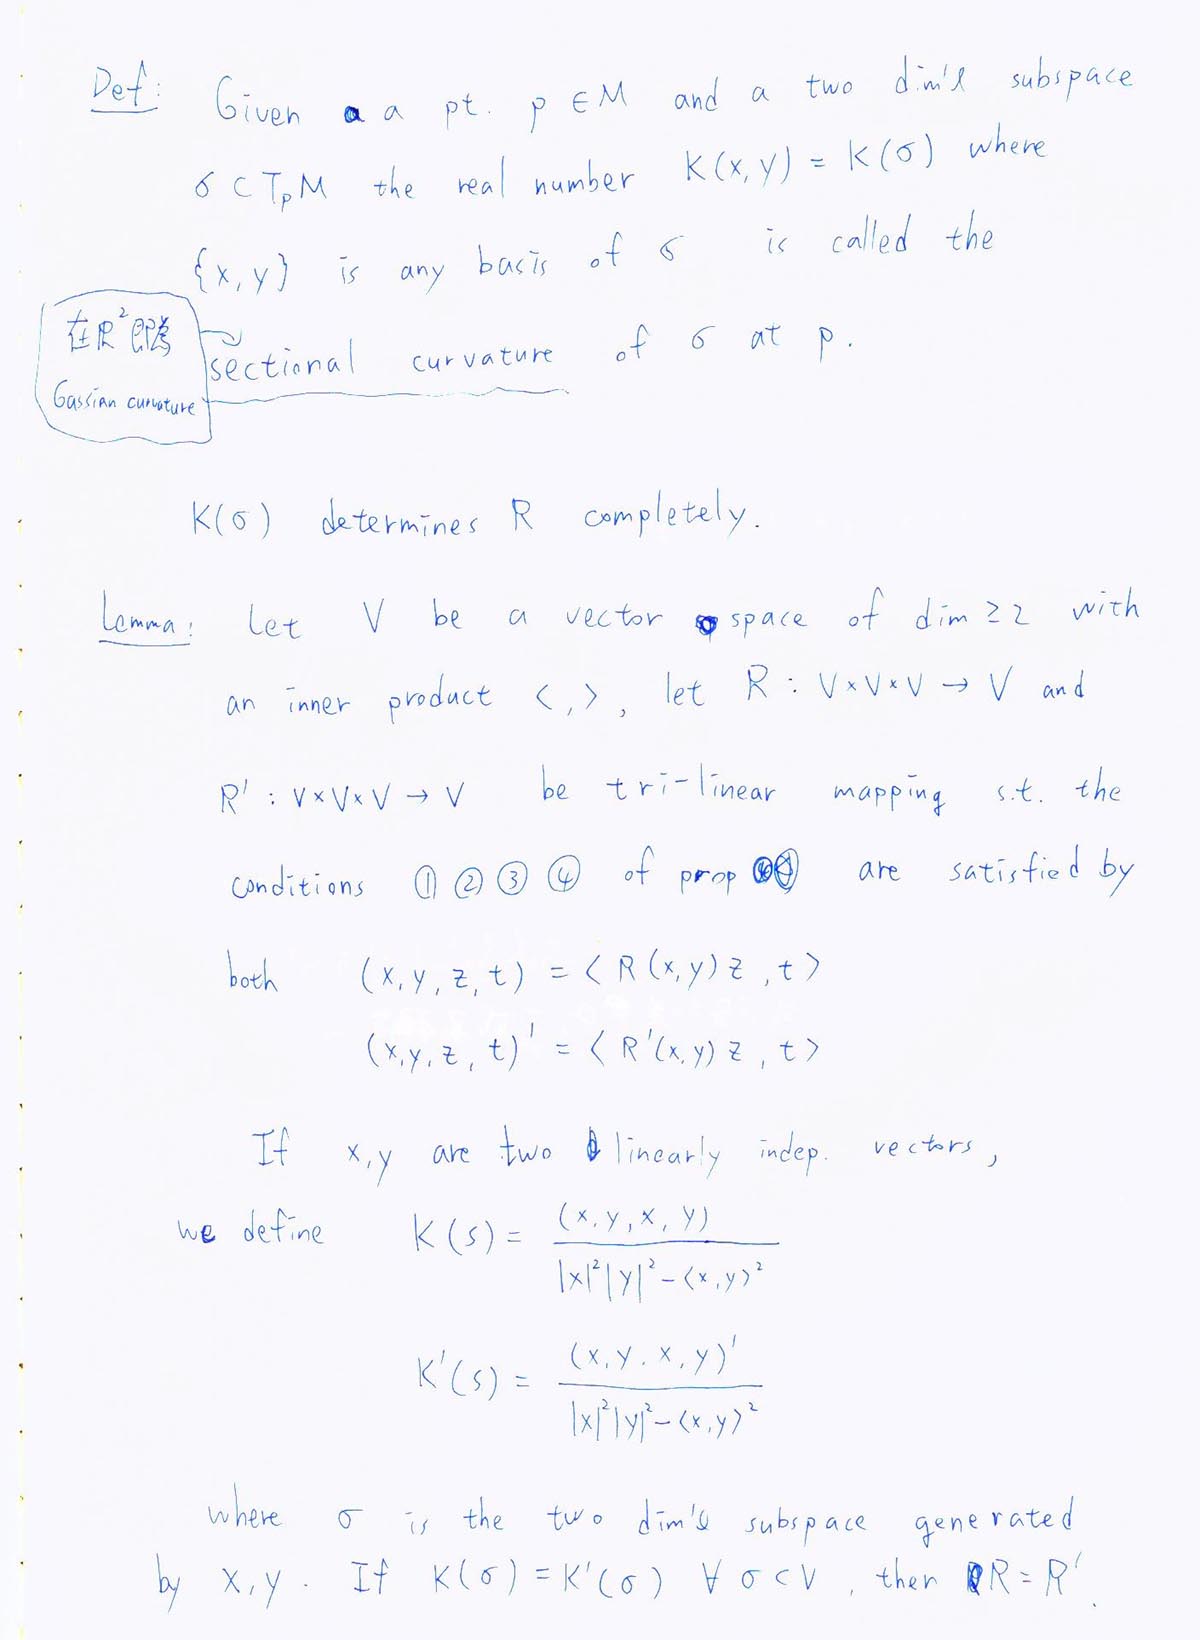 Def: Given a a pt. p ∈ M and a two dim'l subspace
σ ⊂ TpM the real number K(x,y) = K(σ) where
{x,y} is any basis of σ is called the
在R² 即為
sectional curvature of σ at p.
Gassian curvature
K(σ) determines R completely.
Lemma: Let V be a vector space of dim ≥ 2 with
an inner product < , >, let R : V×V×V → V and
R' : V×V×V → V be tri-linear mapping s.t. the
conditions ① ② ③ ④ of prop are satisfied by
both (x,y,z,t) = <R(x,y)z,t>
(x,y,z,t)' = <R'(x,y)z,t>
If x,y are two linearly indep. vectors,
we define K(s) = (x,y,x,y) / |x|²|y|²-<x,y>²
K'(s) = (x,y.x,y)' / |x|²|y|²-<x,y>²
where σ is the two dim'l subspace generated
by x,y. If K(σ) = K'(σ) ∀ σ⊂V, then R = R'.